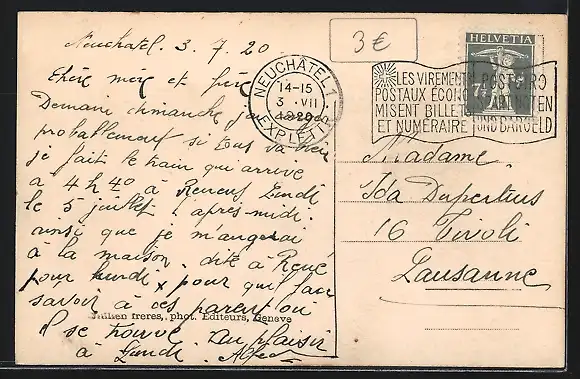 Neuchatel. 3. 7. 20
3 €
HELVETIA
7½
NEUCHÂTEL 1
14-15
3. VII
1920
EXPLETT.
LES VIREMENTS
POSTAUX ÉCONO
MISENT BILLETS
ET NUMÉRAIRE
POSTGIRO
SPART NOTEN
UND BARGELD
Chère mère et frère
Demain dimanche
probablement si tous va bien
je fait le train qui arrive
a 4 h 40 a Renens Lundi
le 5 juillet l après-midi.
ainsi que je mangerai
à la maison. dite à René
pour lundi x pour qu'il
savoir à ces parent ou
il se trouve. Au plaisir
à Lundi.
Jullien freres, phot. Editeurs, Geneve
Madame
Ida Dupertuis
16 Tivoli
Lausanne